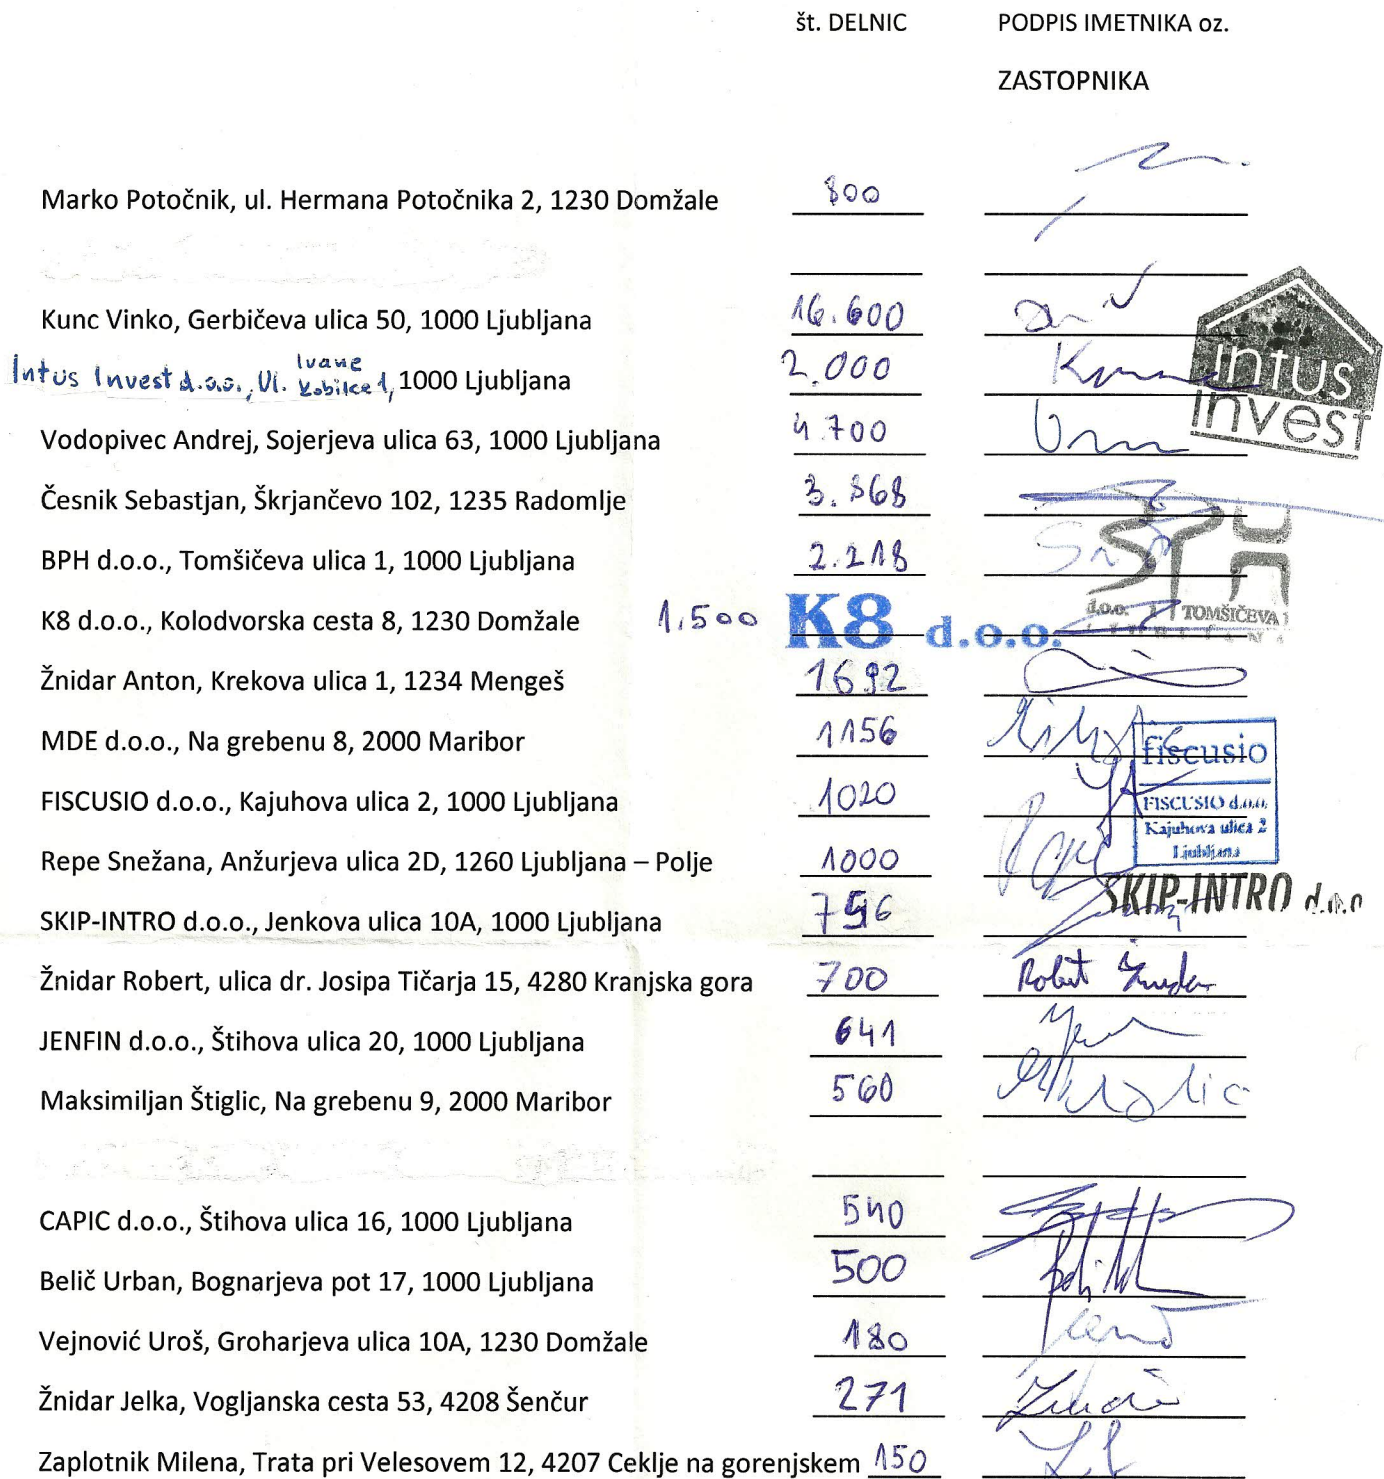 št. DELNIC PODPIS IMETNIKA oz.
ZASTOPNIKA
Marko Potočnik, ul. Hermana Potočnika 2, 1230 Domžale 800
Kunc Vinko, Gerbičeva ulica 50, 1000 Ljubljana 16.600
Intus Invest d.o.o., Ul. Ivane Kobilce 1, 1000 Ljubljana 2.000
intus
invest
Vodopivec Andrej, Sojerjeva ulica 63, 1000 Ljubljana 4.700
Česnik Sebastjan, Škrjančevo 102, 1235 Radomlje 3.868
BPH d.o.o., Tomšičeva ulica 1, 1000 Ljubljana 2.218
d.o.o. TOMŠIČEVA 1
K8 d.o.o., Kolodvorska cesta 8, 1230 Domžale 1.500 K8 d.o.o.
Žnidar Anton, Krekova ulica 1, 1234 Mengeš 1692
MDE d.o.o., Na grebenu 8, 2000 Maribor 1156
fiscusio
FISCUSIO d.o.o., Kajuhova ulica 2, 1000 Ljubljana 1020
FISCUSIO d.o.o.
Kajuhova ulica 2
Ljubljana
Repe Snežana, Anžurjeva ulica 2D, 1260 Ljubljana – Polje 1000
SKIP-INTRO d.o.o., Jenkova ulica 10A, 1000 Ljubljana SKIP-INTRO d.o.o
Žnidar Robert, ulica dr. Josipa Tičarja 15, 4280 Kranjska gora 700 Robert Žnidar
JENFIN d.o.o., Štihova ulica 20, 1000 Ljubljana 641
Maksimiljan Štiglic, Na grebenu 9, 2000 Maribor 560
CAPIC d.o.o., Štihova ulica 16, 1000 Ljubljana 540
Belič Urban, Bognarjeva pot 17, 1000 Ljubljana 500
Vejnović Uroš, Groharjeva ulica 10A, 1230 Domžale 180
Žnidar Jelka, Vogljanska cesta 53, 4208 Šenčur 271
Zaplotnik Milena, Trata pri Velesovem 12, 4207 Ceklje na gorenjskem 150